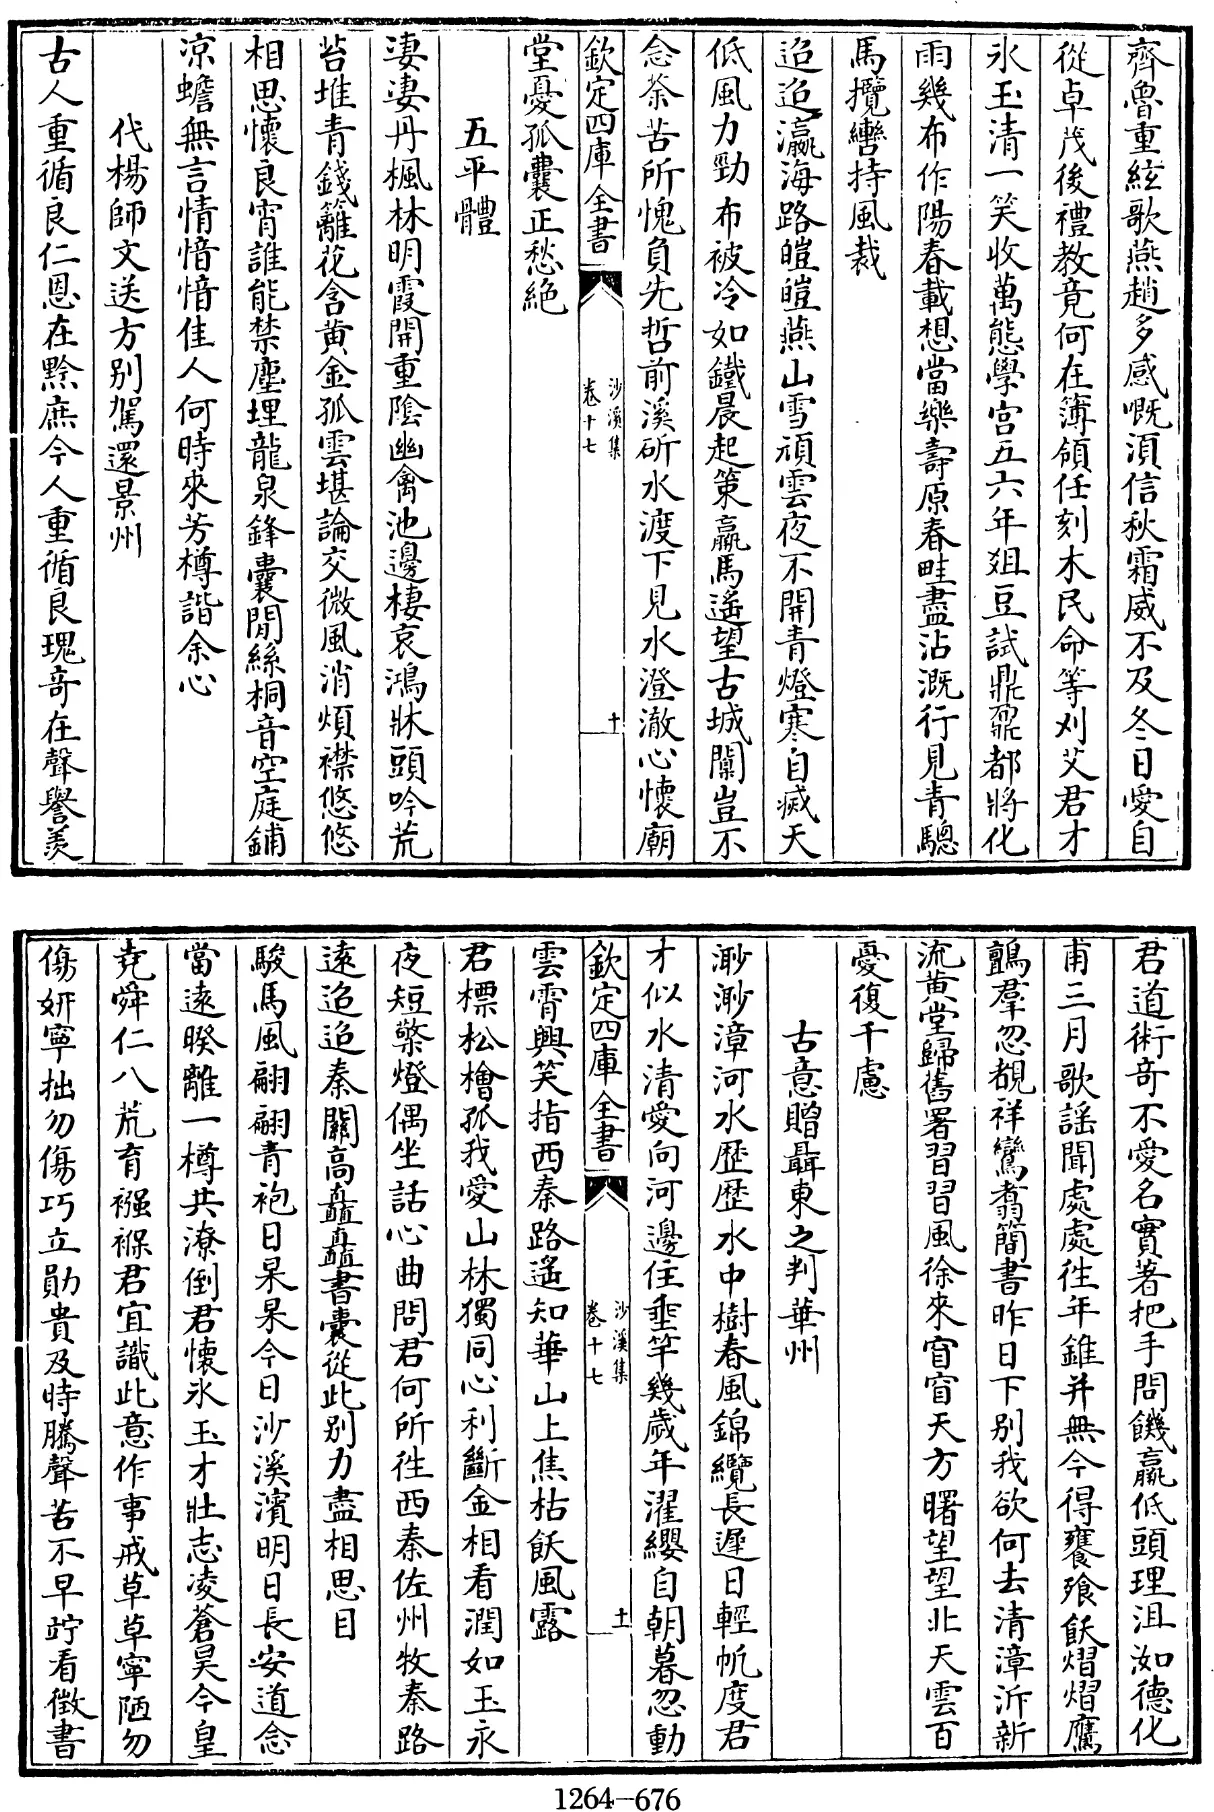 齊魯重絃歌燕趙多感嘅湏信秋霜威不及冬日愛自
從卓茂後禮教竟何在簿領任刻木民命等刈艾君才
氷玉清一笑收萬態學宫五六年爼豆試鼎鼐都將化
雨幾布作陽春載想當樂壽原春畦盡沾溉行見青驄
馬攬轡持風裁
迢迢瀛海路皚皚燕山雪頑雲夜不開青燈寒自滅天
低風力勁布被冷如鐵晨起策羸馬遥望古城闑豈不
念荼苦所愧負先哲前溪斫水渡下見水澄澈心懷廟
欽定四庫全書
沙溪集
卷十七
十
堂憂孤囊正愁絶
五平體
淒淒丹楓林明霞開重陰幽禽池邊棲哀鴻牀頭吟荒
苔堆青錢籬花含黄金孤雲堪論交微風消煩襟悠悠
相思懷良宵誰能禁塵埋龍泉鋒囊閒絲桐音空庭鋪
凉蟾無言情愔愔佳人何時來芳樽諧余心
代楊師文送方别駕還景州
古人重循良仁恩在黔庶今人重循良瑰竒在聲譽羡
君道術竒不愛名實著把手問饑羸低頭理沮洳德化
甫三月歌謡聞處處徃年錐并無今得饔飱飫熠熠鷹
鸇羣忽覩祥鸞翥簡書昨日下别我欲何去清漳泝新
流黄堂歸舊署習習風徐來窅窅天方曙望望北天雲百
憂復千慮
古意贈聶東之判華州
渺渺漳河水歴歴水中樹春風錦纜長遲日輕帆度君
才似水清愛向河邊住垂竿幾歲年濯纓自朝暮忽動
欽定四庫全書
沙溪集
卷十七
十一
雲霄興笑指西秦路遥知華山上焦枯飫風露
君標松檜孤我愛山林獨同心利斷金相看潤如玉永
夜短檠燈偶坐話心曲問君何所徃西秦佐州牧秦路
遠迢迢秦關高矗矗書囊從此别力盡相思目
駿馬風翩翩青袍日杲杲今日沙溪濱明日長安道念
當遠暌離一樽共潦倒君懷氷玉才壯志凌蒼昊今皇
堯舜仁八荒育襁褓君宜識此意作事戒草草寧陋勿
傷妍寧拙勿傷巧立勛貴及時騰聲苦不早竚看徵書
1264-676